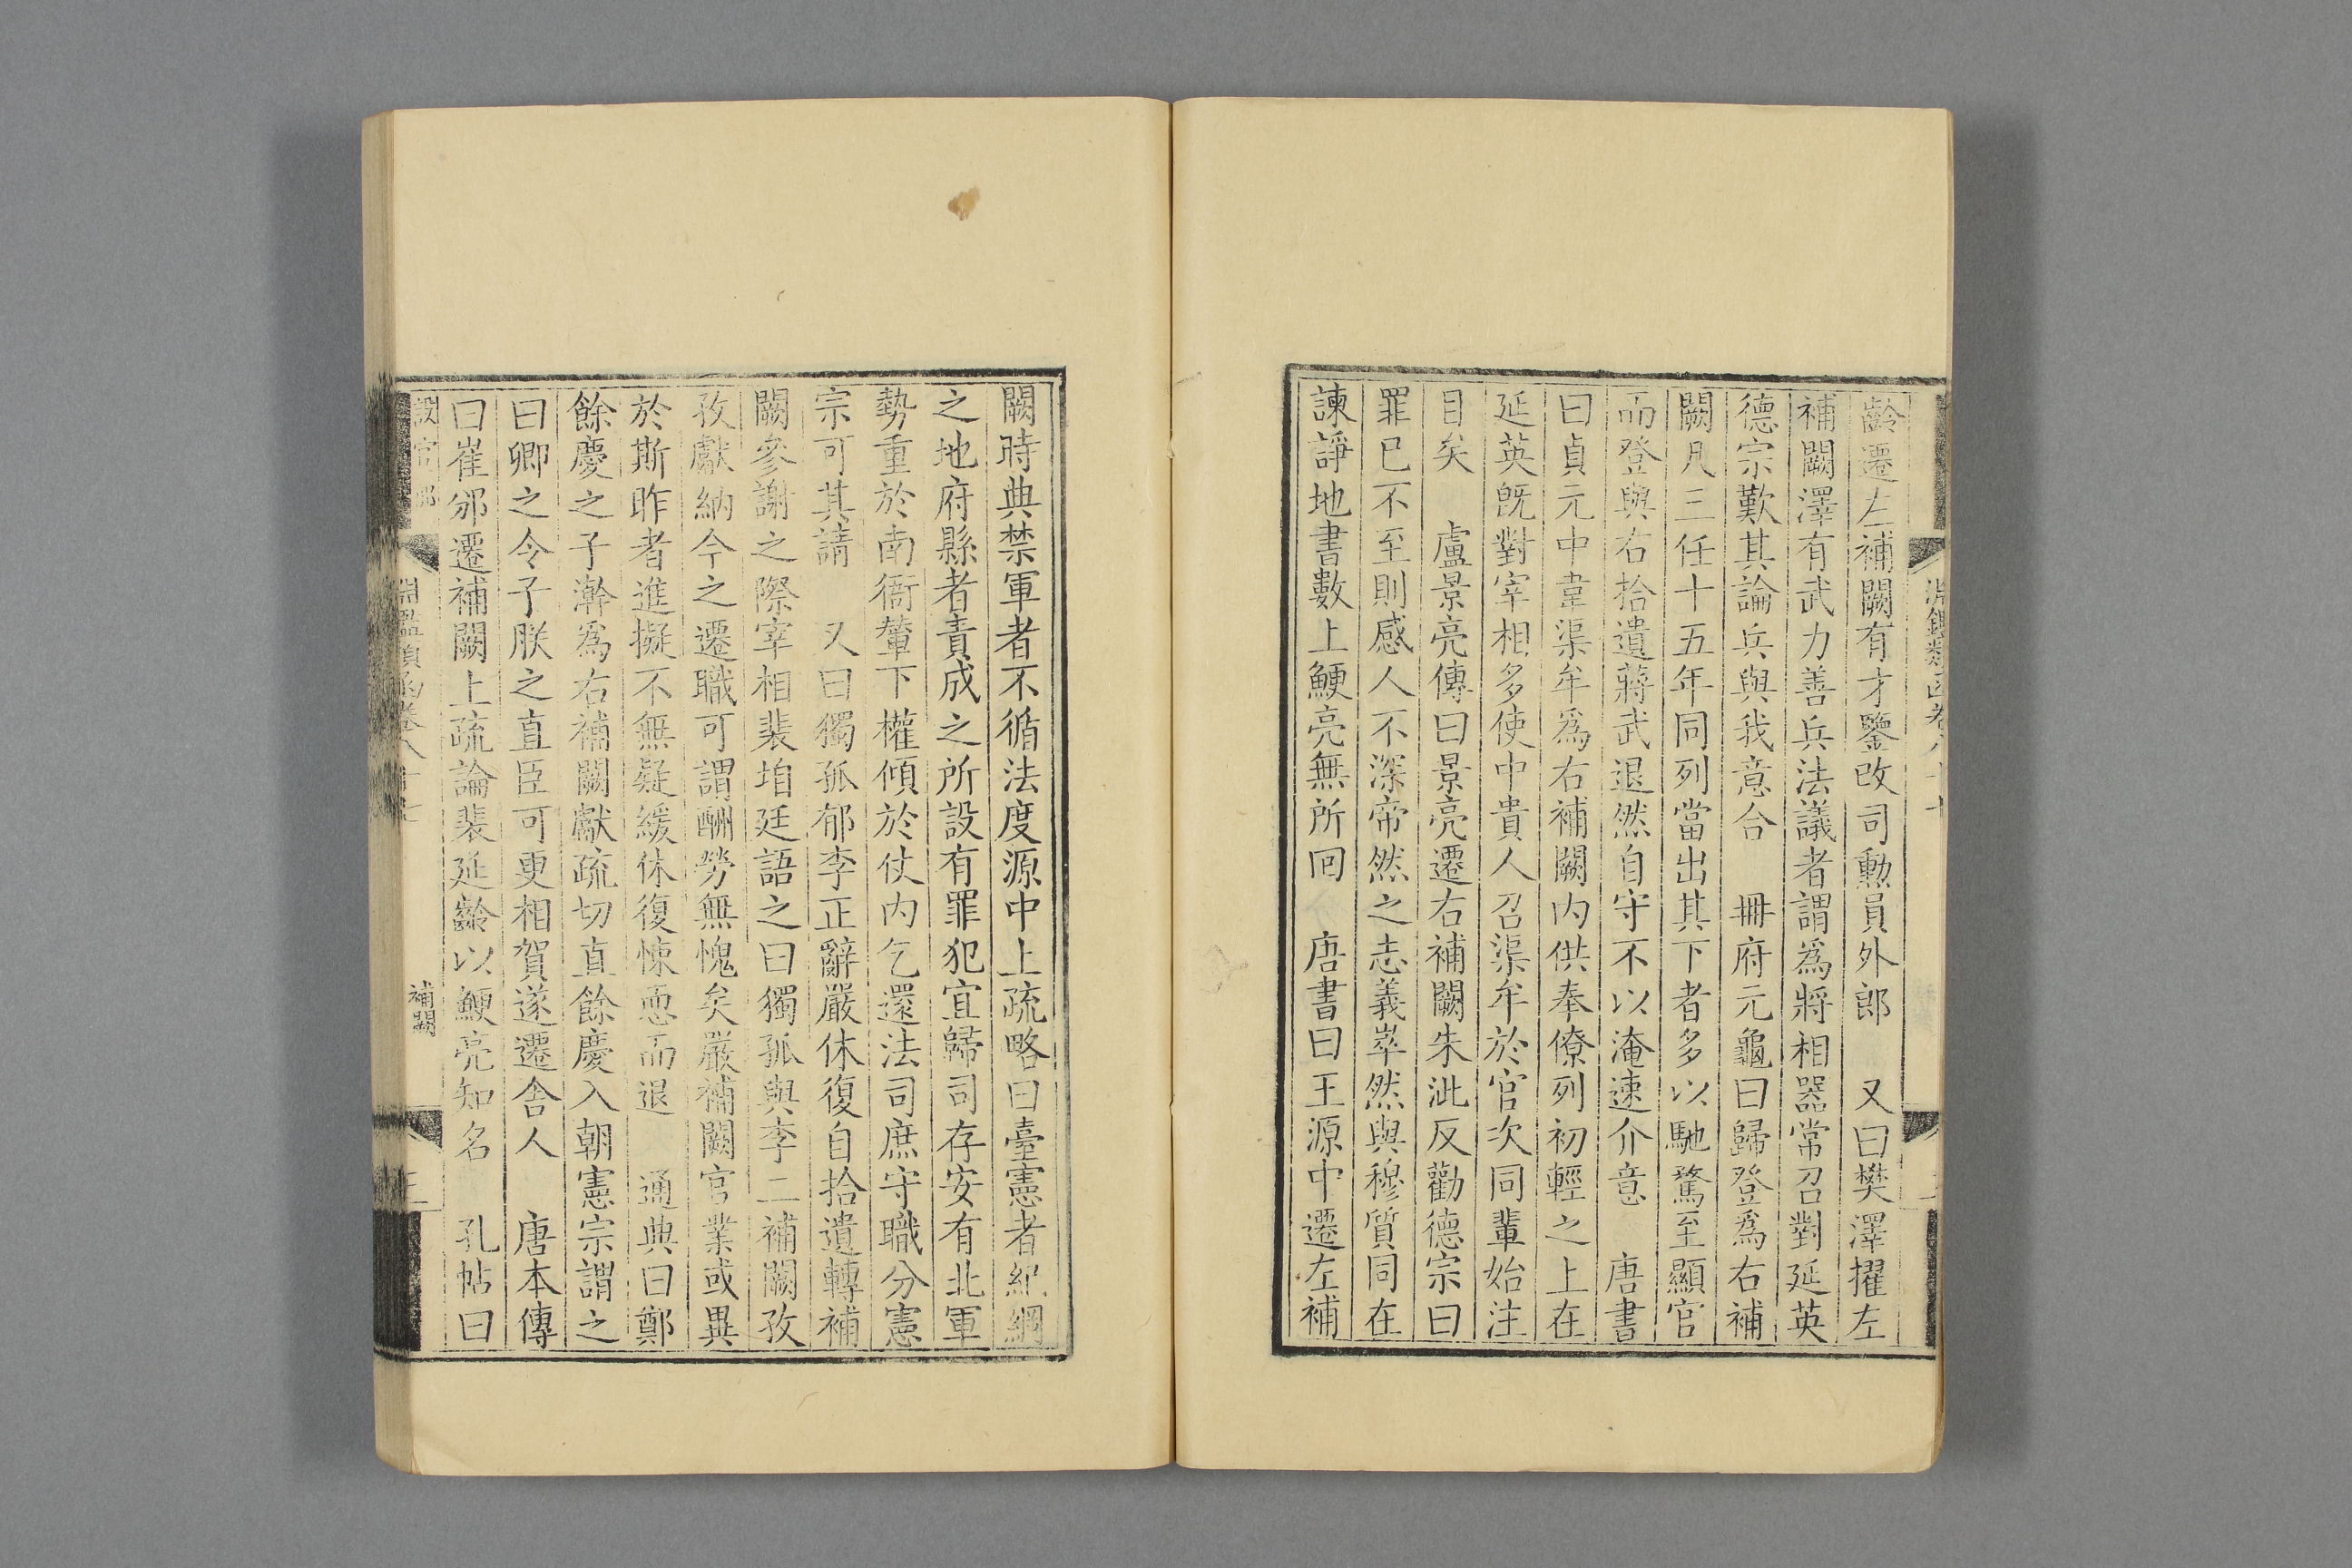 齡遷左補闕有才鑒改司勲員外郎　又曰樊澤擢左
補闕澤有武力善兵法議者謂爲將相器常召對延英
德宗歎其論兵與我意合　冊府元龜曰歸登爲右補
闕凡三任十五年同列當出其下者多以馳騖至顯官
而登與右拾遺蔣武退然自守不以淹速介意　唐書
曰貞元中韋渠牟爲右補闕内供奉僚列初輕之上在
延英旣對宰相多使中貴人召渠牟於官次同輩始注
目矣　盧景亮傳曰景亮遷右補闕朱泚反勸德宗曰
罪已不至則感人不深帝然之志義崒然與穆質同在
諫諍地書數上鯁亮無所回　唐書曰王源中遷左補
闕時典禁軍者不循法度源中上疏略曰臺憲者紀綱
之地府縣者責成之所設有罪犯宜歸司存安有北軍
勢重於南衙輦下權傾於仗内乞還法司庶守職分憲
宗可其請　又曰獨孤郁李正辭嚴休復自拾遺轉補
闕參謝之際宰相裴垍廷語之曰獨孤與李二補闕孜
孜獻納今之遷職可謂酬勞無愧矣嚴補闕官業或異
於斯昨者進擬不無疑緩休復悚恧而退　通典曰鄭
餘慶之子澣爲右補闕獻疏切直餘慶入朝憲宗謂之
曰卿之令子朕之直臣可更相賀遂遷舍人　唐本傳
曰崔邠遷補闕上疏論裴延齡以鯁亮知名　孔帖曰
設官部
淵鑑類函卷八十七
補闕